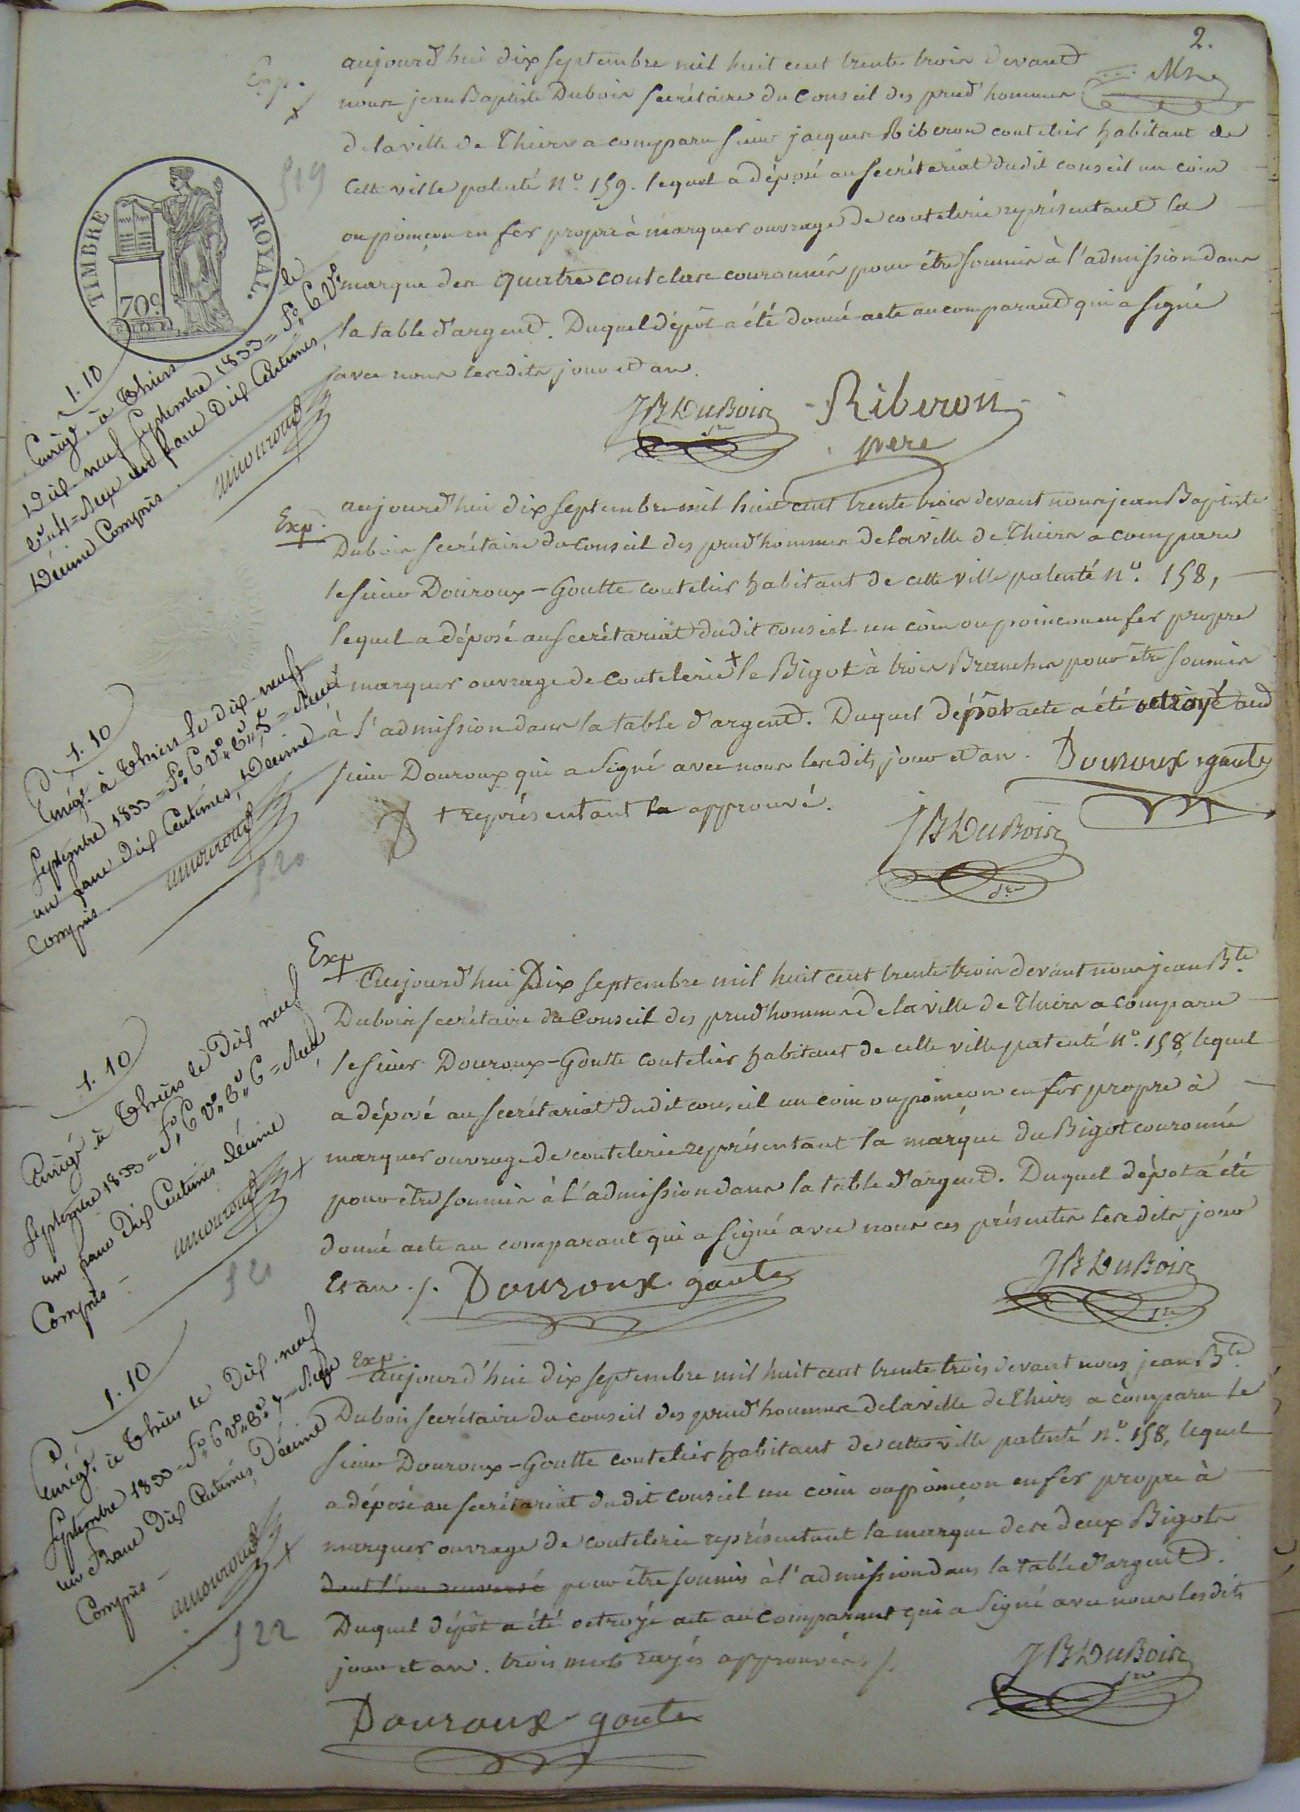 2.
Exp.
aujourd'hui dix septembre mil huit cent trente trois devant
nous jean Baptiste Dubois secrétaire du Conseil des prud'hommes
de la ville de Thiers a comparu sieur jacques Riberon coutelier habitant de
Cette ville patenté N.º 159. lequel a déposé au secrétariat dudit conseil un coin
ou poinçon en fer propre à marquer ouvrage de coutelerie représentant la
marque des quatre coutelas couronnés pour être soumis à l'admission dans
la table d'argent. Duquel dépôt a été donné acte au comparant qui a signé
avec nous lesdits jour et an.
JB DuBois
Riberon
pere
519
TIMBRE ROYAL.
70c.
1.10
Enrégé. à Thiers le
Dix neuf Septembre 1833 = Fº. 6 Vº.
Cᵉ. 4 = Reçu un franc Dix Centimes,
Décime Compris
amouroux
Exp.
aujourd'hui dix septembre mil huit cent trente trois devant nous jean Baptiste
Dubois secrétaire du Conseil des prud'hommes de la ville de Thiers a comparu
le sieur Douroux-Goutte coutelier habitant de cette ville patenté nº. 158,
lequel a déposé au secrétariat dudit conseil un coin ou poinçon en fer propre
à marquer ouvrage de coutelerie + le Bigot à trois Branches pour être soumis
à l'admission dans la table d'argent. Duquel dépôt acte a été octroyé aud
sieur Douroux qui a signé avec nous lesdits jour et an.
Douroux goute
+ représentant la approuvé.
JB DuBois
sre
1.10
Enrégé. à Thiers le dix neuf
Septembre 1833 = Fº. 6 Vº. Cᵉ. 5 = Reçu
un franc Dix Centimes, Décime
Compris
amouroux
520
Exp
Aujourd'hui Dix septembre mil huit cent trente trois devant nous jean Bte
Dubois secrétaire du Conseil des prud'hommes de la ville de Thiers a comparu
le sieur Douroux-Goutte coutelier habitant de cette ville patenté nº. 158, lequel
a déposé au secrétariat dudit conseil un coin ou poinçon en fer propre à
marquer ouvrage de coutelerie représentant la marque du Bigot couronné
pour être soumis à l'admission dans la table d'argent. Duquel dépôt a été
donné acte au comparant qui a signé avec nous ces présentes lesdits jour
et an ./. Douroux goute
JB DuBois
sre
1.10
Enrégé à Thiers le Dix neuf
Septembre 1833 = Fº. 6 Vº. Cᵉ. 6 = Reçu
un franc Dix Centimes Décime
Compris
amouroux
521
Exp.
aujourd'hui dix septembre mil huit cent trente trois devant nous jean Bte
Dubois secrétaire du conseil des prud'hommes de la ville de Thiers a comparu le
sieur Douroux-Goutte coutelier habitant de cette ville patenté nº. 158, lequel
a déposé au secrétariat dudit conseil un coin ou poinçon en fer propre à
marquer ouvrage de coutelerie représentant la marque des deux Bigots
dont l'un renversé pour être soumis à l'admission dans la table d'argent.
Duquel dépôt a été octroyé acte au comparant qui a signé avec nous lesdits
jour et an. trois mots rayés approuvés ./.
JB DuBois
sre
Douroux goute
1.10
Enrégé. à Thiers le Dix neuf
Septembre 1833 = Fº. 6 Vº. Cᵉ. 7 = Reçu
un Franc Dix Centimes, Décime
Compris
amouroux
522